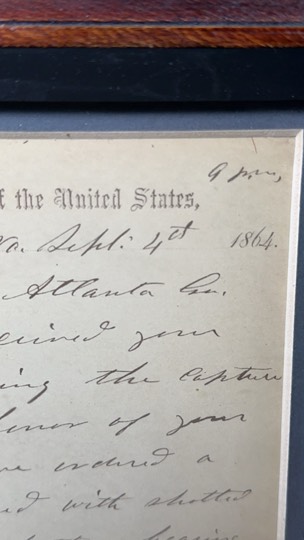 9 p.m,
f the United States,
Va. Sept. 4th 1864.
Atlanta Ga.
ceived your
ing the capture
honor of your
ve ordered a
ed with shotted